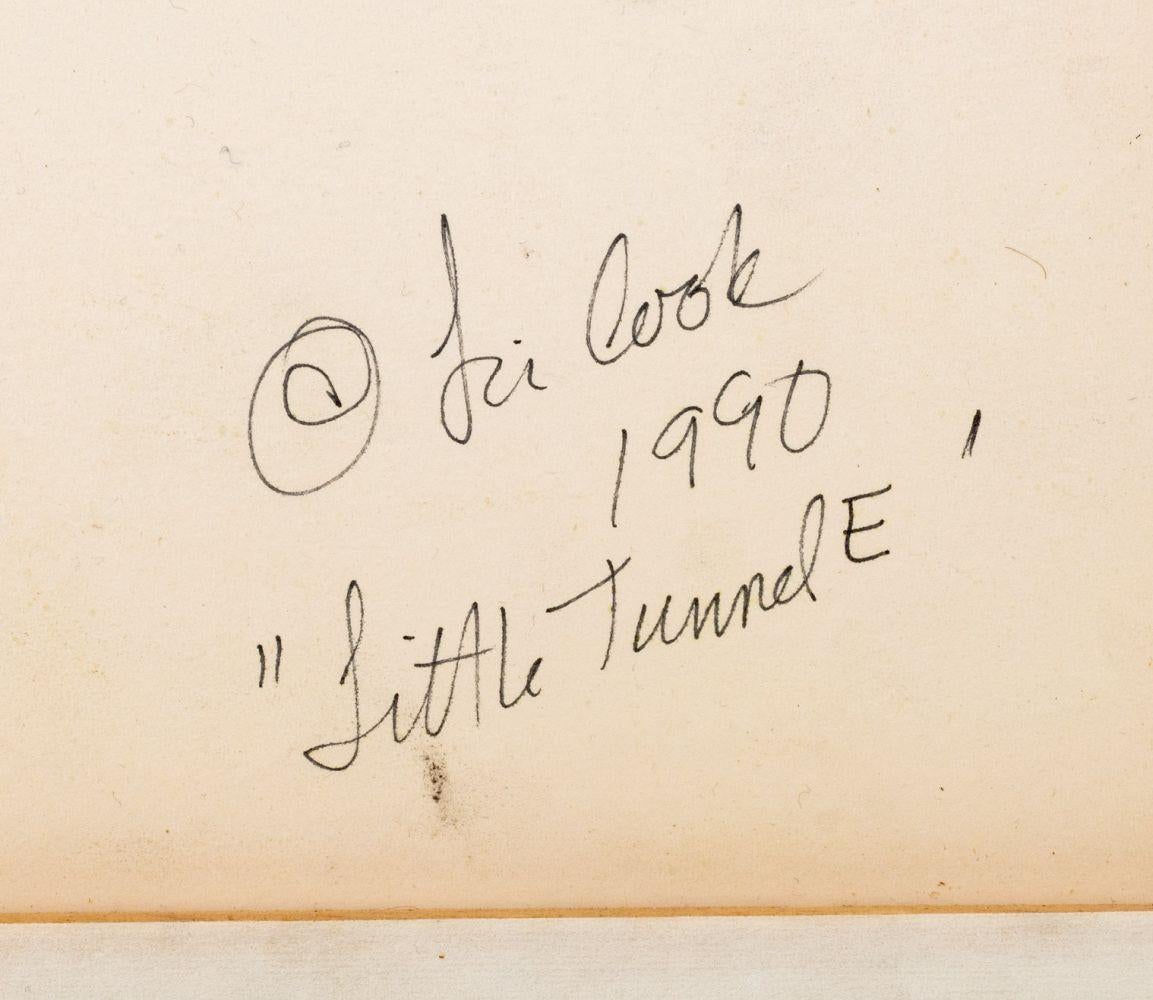 © Lia Cook
1990
"Little Tunnel E"